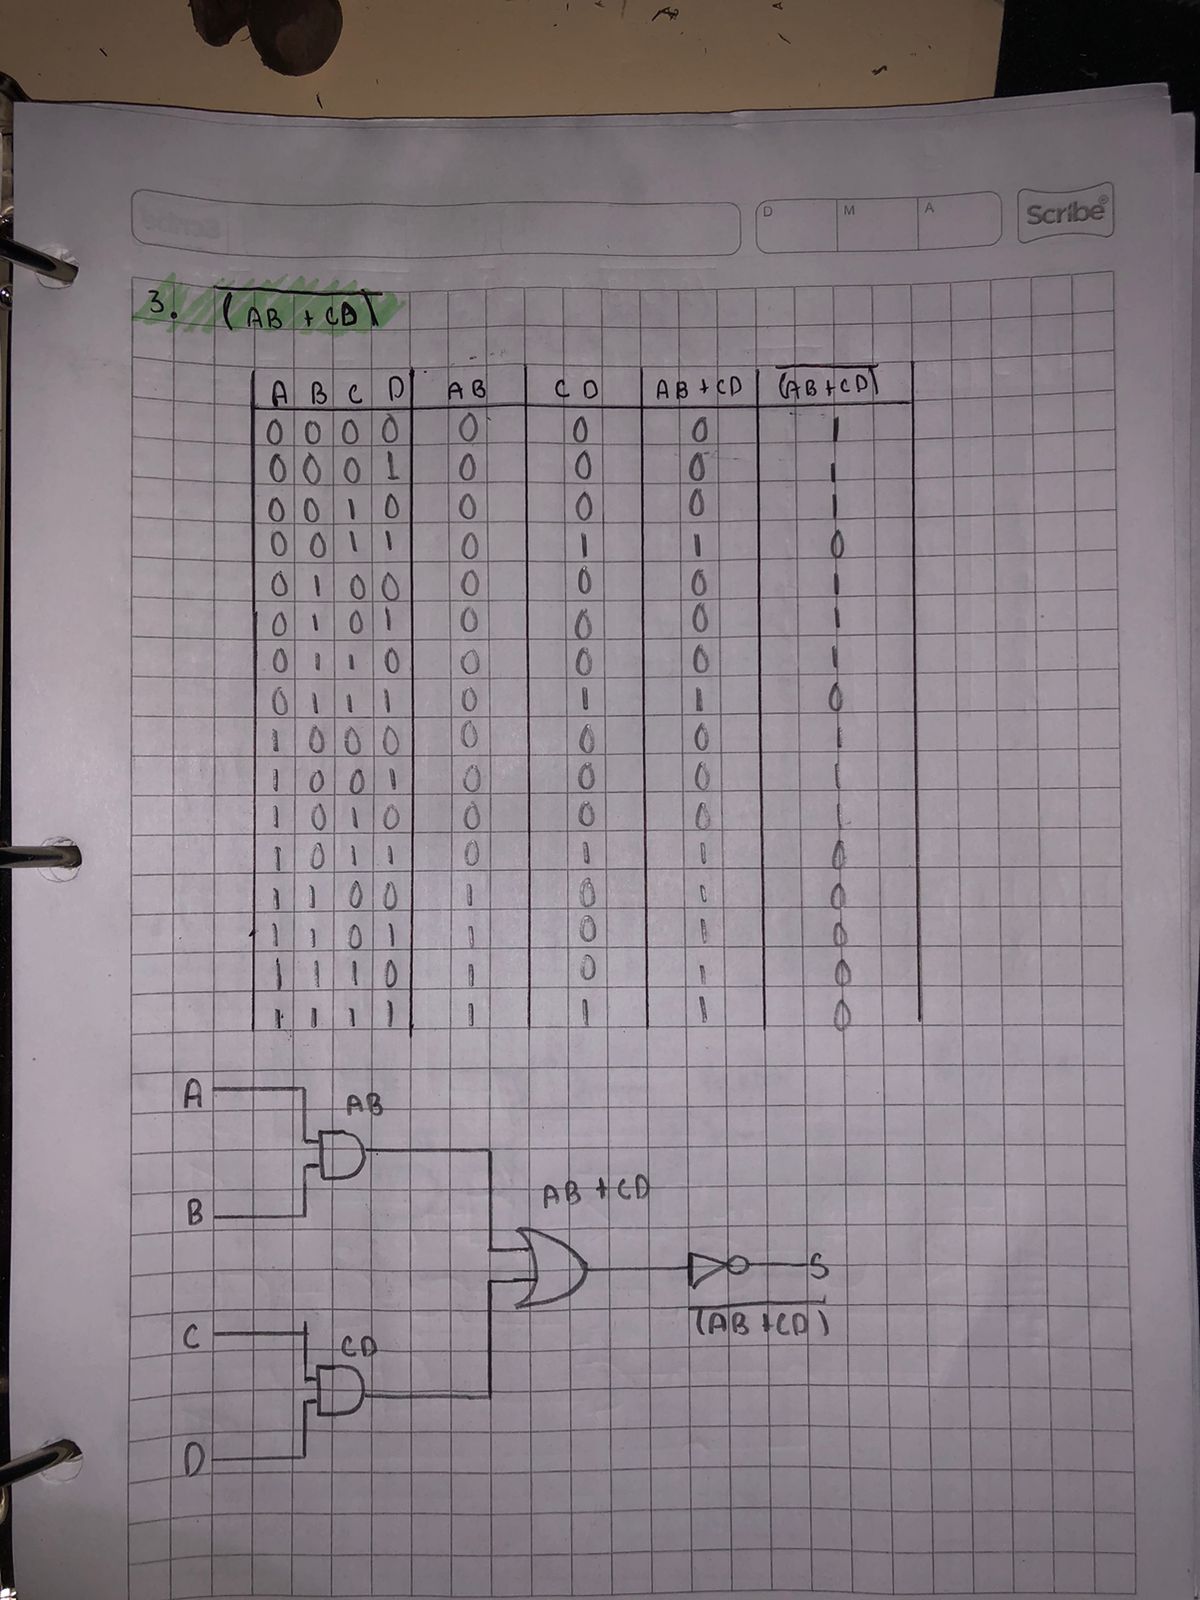 Scribe
D M A Scribe®
3. (AB + CD)
A B C D AB CD AB+CD (AB+CD)
0 0 0 0 0 0 0 1
0 0 0 1 0 0 0 1
0 0 1 0 0 0 0 1
0 0 1 1 0 1 1 0
0 1 0 0 0 0 0 1
0 1 0 1 0 0 0 1
0 1 1 0 0 0 0 1
0 1 1 1 0 1 1 0
1 0 0 0 0 0 0 1
1 0 0 1 0 0 0 1
1 0 1 0 0 0 0 1
1 0 1 1 0 1 1 0
1 1 0 0 1 0 1 0
1 1 0 1 1 0 1 0
1 1 1 0 1 0 1 0
1 1 1 1 1 1 1 0
A
AB
B
AB + CD
S
(AB+CD)
C
CD
D